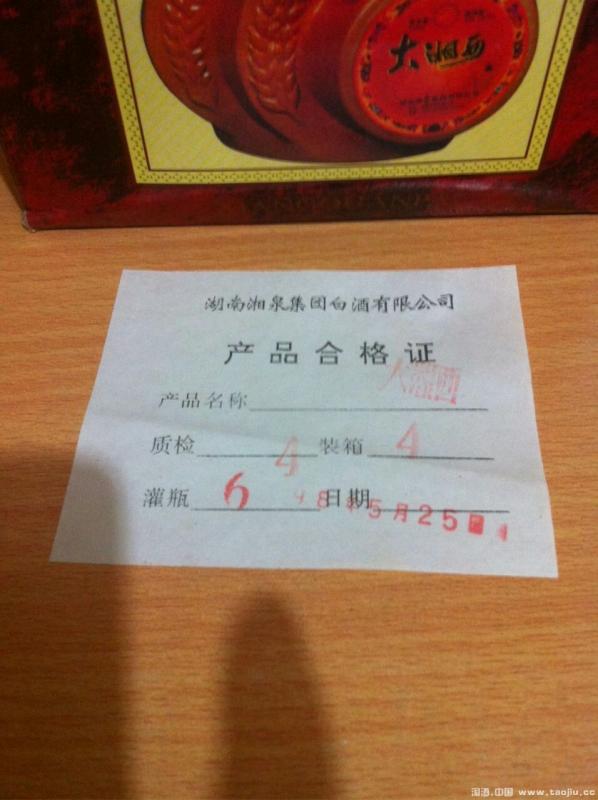 大湘西
湖南湘泉集团白酒有限公司
产品合格证
产品名称 大湘西
质检 4 装箱 4
灌瓶 6 日期 98年5月25日
淘酒.中国 www.taojiu.cc